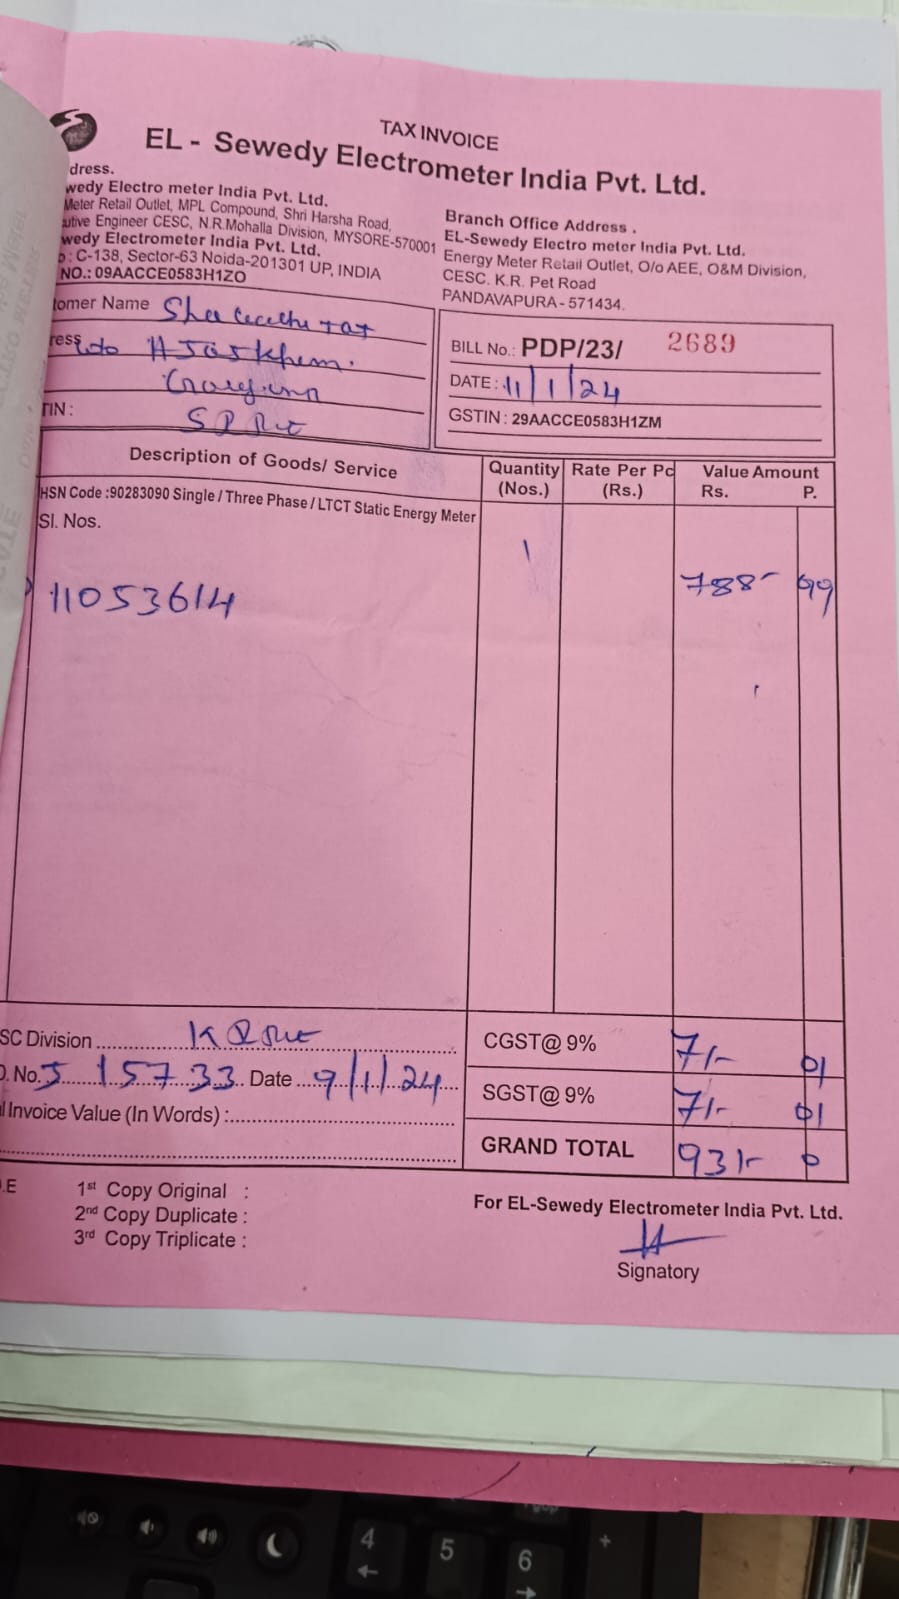 TAX INVOICE
EL - Sewedy Electrometer India Pvt. Ltd.
dress.
wedy Electro meter India Pvt. Ltd.
Meter Retail Outlet, MPL Compound, Shri Harsha Road,
utive Engineer CESC, N.R.Mohalla Division, MYSORE-570001
wedy Electrometer India Pvt. Ltd.
: C-138, Sector-63 Noida-201301 UP, INDIA
NO.: 09AACCE0583H1ZO
Branch Office Address .
EL-Sewedy Electro meter India Pvt. Ltd.
Energy Meter Retail Outlet, O/o AEE, O&M Division,
CESC. K.R. Pet Road
PANDAVAPURA - 571434.
tomer Name
ress
TIN :
BILL No.: PDP/23/ 2689
DATE : 11/1/24
GSTIN : 29AACCE0583H1ZM
Description of Goods/ Service Quantity (Nos.) Rate Per Pc (Rs.) Value Amount Rs. P.
HSN Code :90283090 Single / Three Phase / LTCT Static Energy Meter
Sl. Nos.
11053614 1 788- 99
SC Division
CGST@ 9% 71- 01
. No. 5 15733 Date 9/1/24
SGST@ 9% 71- 01
l Invoice Value (In Words) :
GRAND TOTAL 931- 0
.E
1st Copy Original :
2nd Copy Duplicate :
3rd Copy Triplicate :
For EL-Sewedy Electrometer India Pvt. Ltd.
Signatory
4
5
6
+